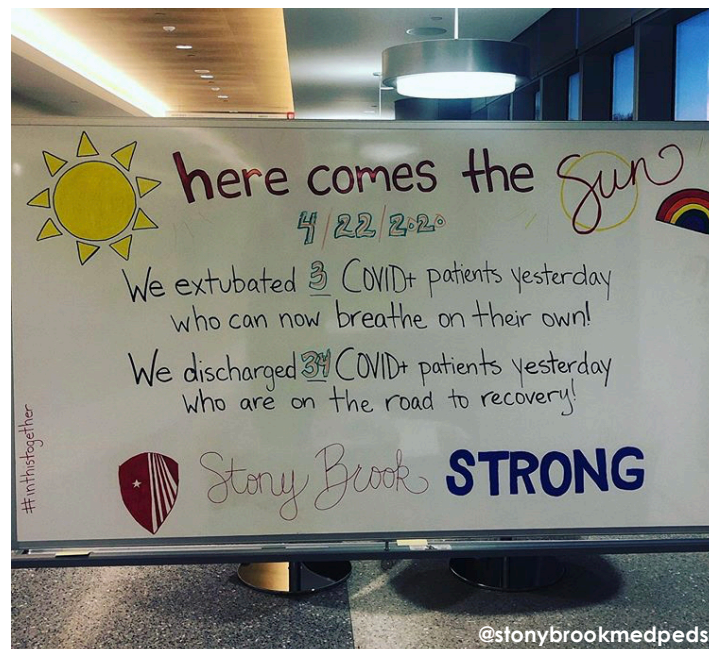 here comes the Sun
4/22/2020
We extubated 3 COVID+ patients yesterday
who can now breathe on their own!
We discharged 34 COVID+ patients yesterday
who are on the road to recovery!
#inthistogether
Stony Brook STRONG
@stonybrookmedpeds